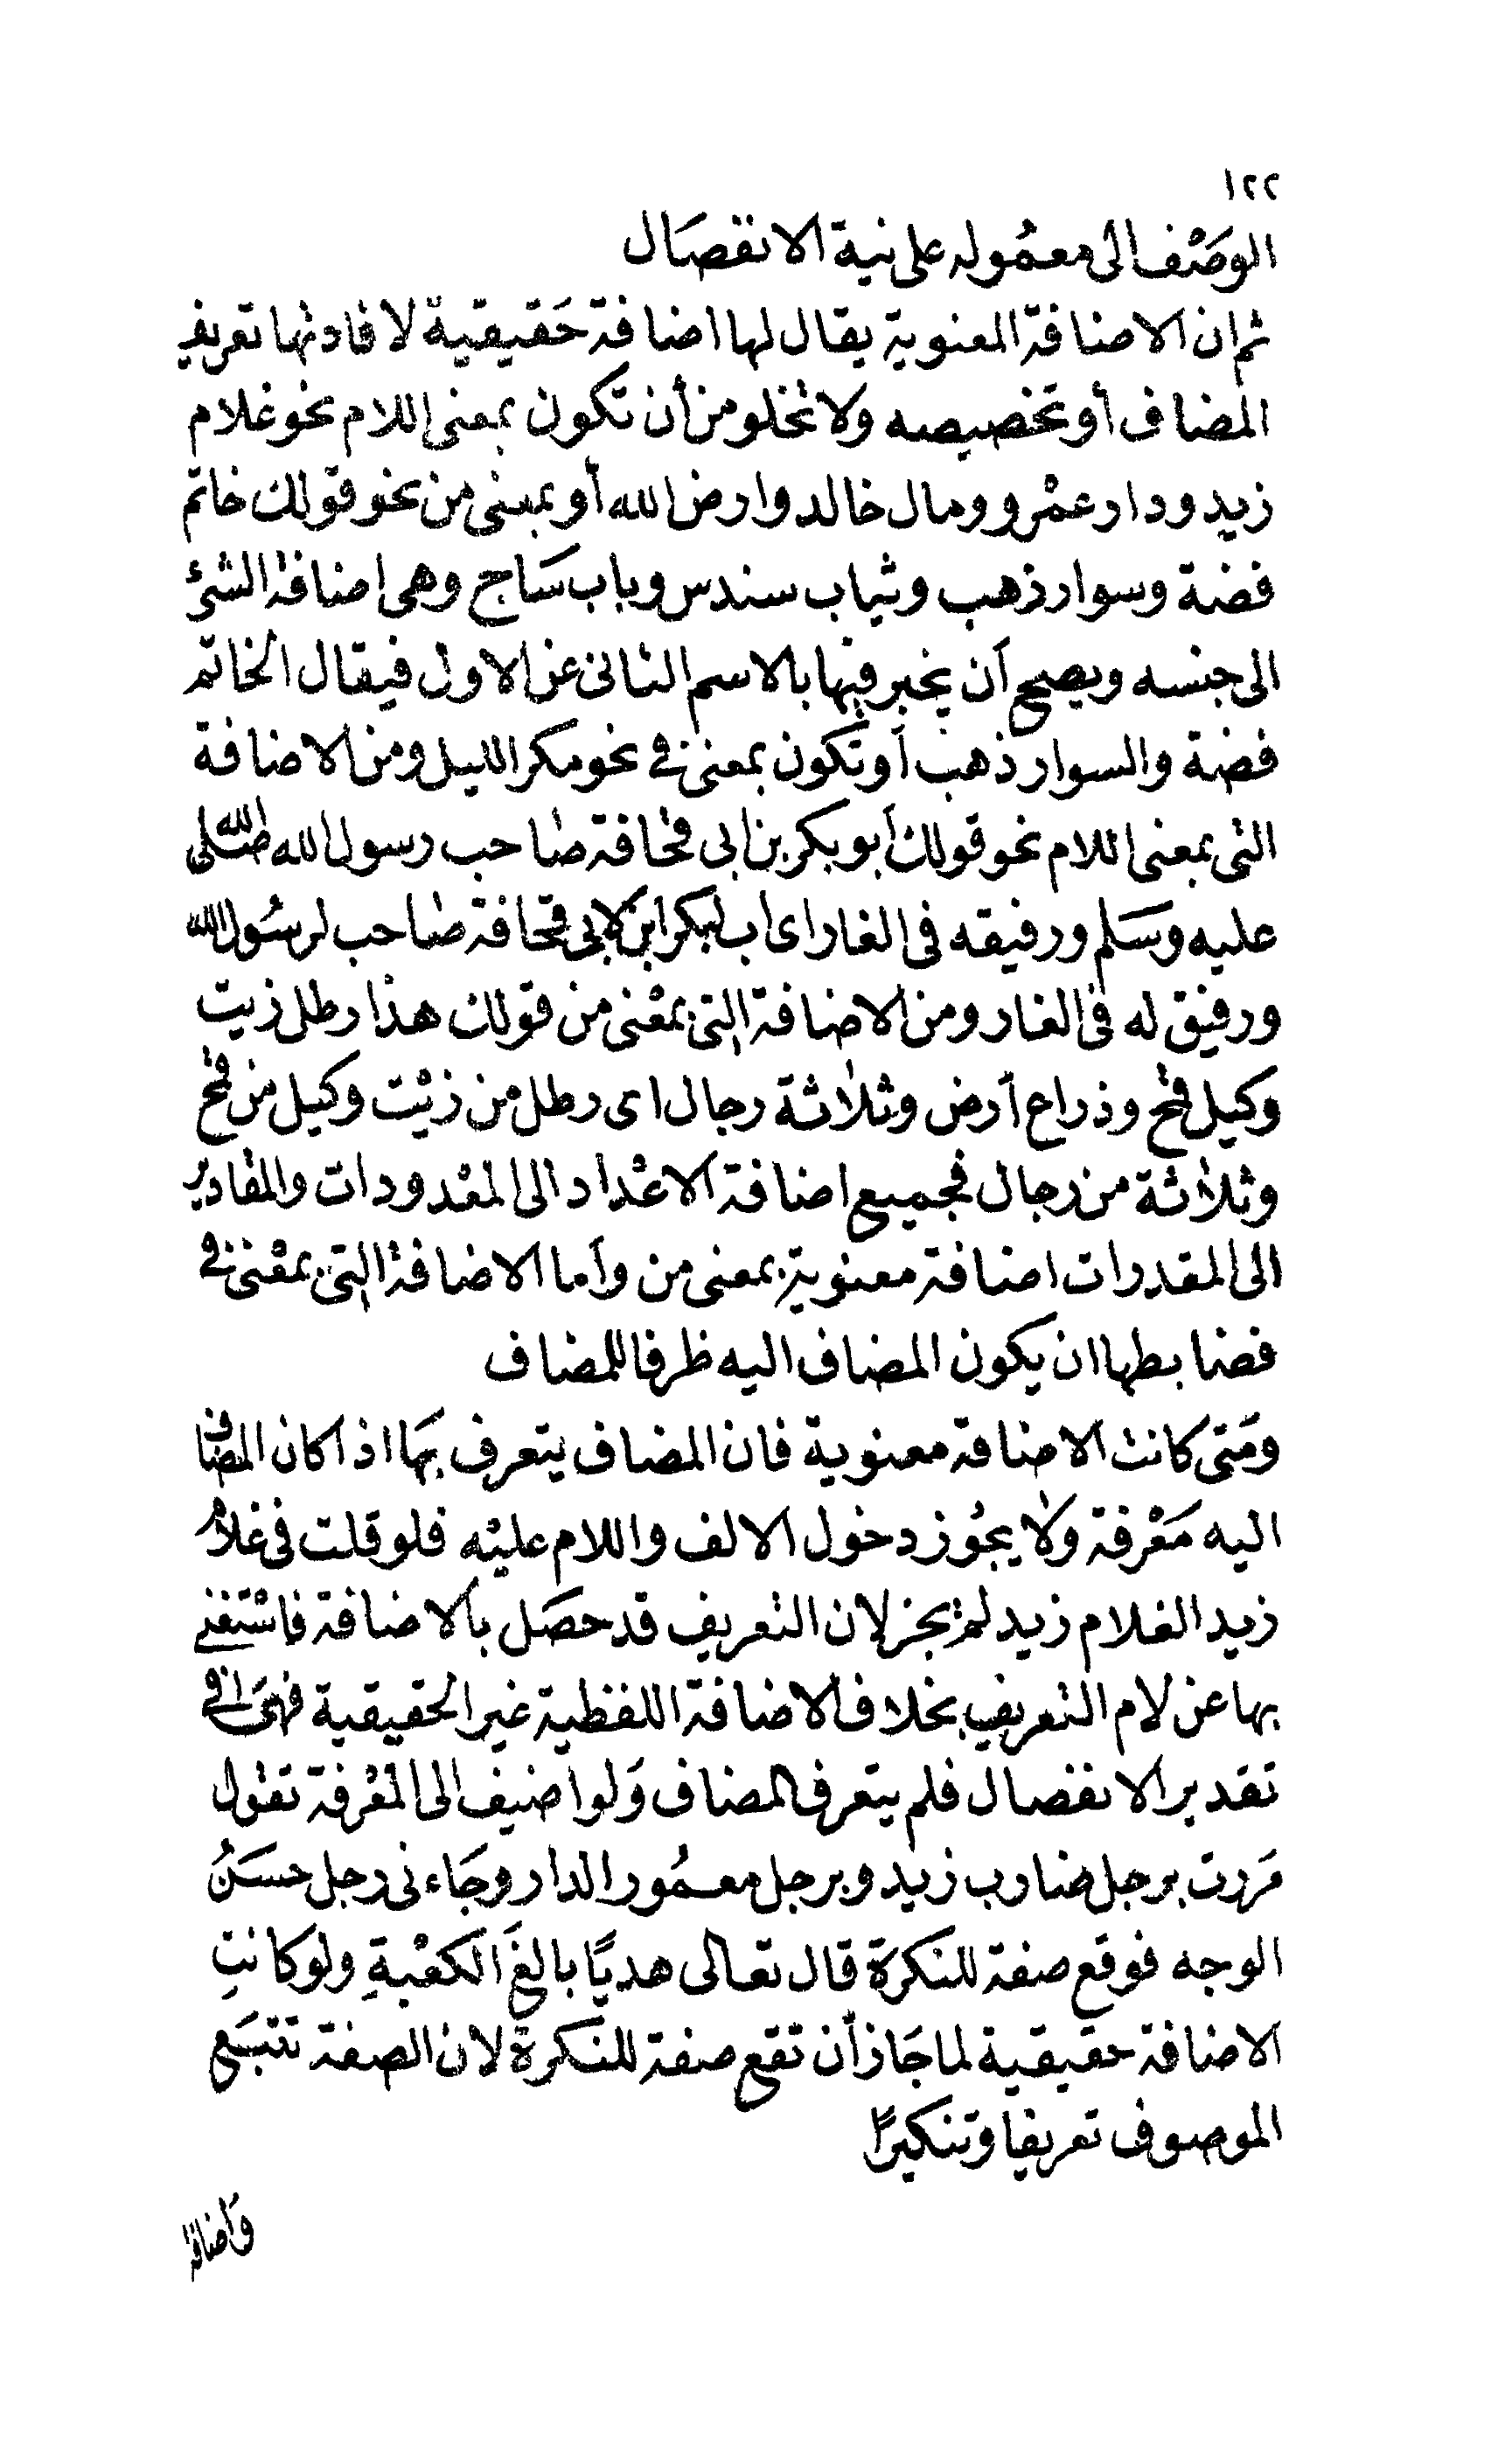 ١٢٢
الوصْف الى معمُوله على نية الانفصَال
ثم ان الاضافة المعنوية يقال لها اضافة حَقيقية لافادتها تعريف
المضاف أو تخصيصه ولا تخلو من أن تكون بمعنى اللام نحو غلام
زيد ودار عمْرو ومال خالد وارض الله أو بمعنى من نحو قولك خاتم
فضة وسوار ذهب وثياب سندس وباب سَاج وهى اضافة الشئ
الى جنسه ويصح أن يخبر فيها بالاسم الثانى عن الاول فيقال الخاتم
فضة والسوار ذهب أو تكون بمعنى فى نحو مكر الليل ومن الاضافة
التى بمعنى اللام نحو قولك أبو بكر بن ابى قحافة صاحب رسول الله صلى الله
عليه وسَلم ورفيقه فى الغار اى اب لبكر ابن لابى قحافة صاحب لرسُول الله
ورفيق له فى الغار ومن الاضافة التى بمعْنى من قولك هذا رطل زيت
وكيل قمح وذراع أرض وثلاثة رجال اى رطل من زيْت وكيل من قمح
وثلاثة من رجال فجميع اضافة الاعْداد الى المعْدودات والمقادير
الى المقدرات اضافة معنوية بمعنى من وأما الاضافة التى بمعْنى فى
فضابطها ان يكون المضاف اليه ظرفا للمضاف
ومَتى كانت الاضافة معنوية فان المضاف يتعرف بهَا اذا كان المضاف
اليه مَعْرفة ولا يجُوز دخول الالف واللام عليْه فلو قلت فى غلام
زيد الغلام زيد لم يجز لان التعريف قد حصَل بالاضافة فاسْتغنى
بها عن لام التعريف بخلاف الاضافة اللفظية غير الحقيقية فهىَ فى
تقدير الانفصال فلم يتعرف المضاف وَلو اضيف الى المعْرفة تقول
مَررت برجل ضارب زيد وبرجل معمُور الدار وجَاءنى رجل حسَنُ
الوجه فوقع صفة للنكرة قال تعالى هديًا بالغَ الكعْبةِ ولو كانتِ
الاضافة حقيقية لما جَاز أن تقع صفة للنكرة لان الصفة تتبَع
الموصوف تعريفا وتنكيرًا
وَاضافة